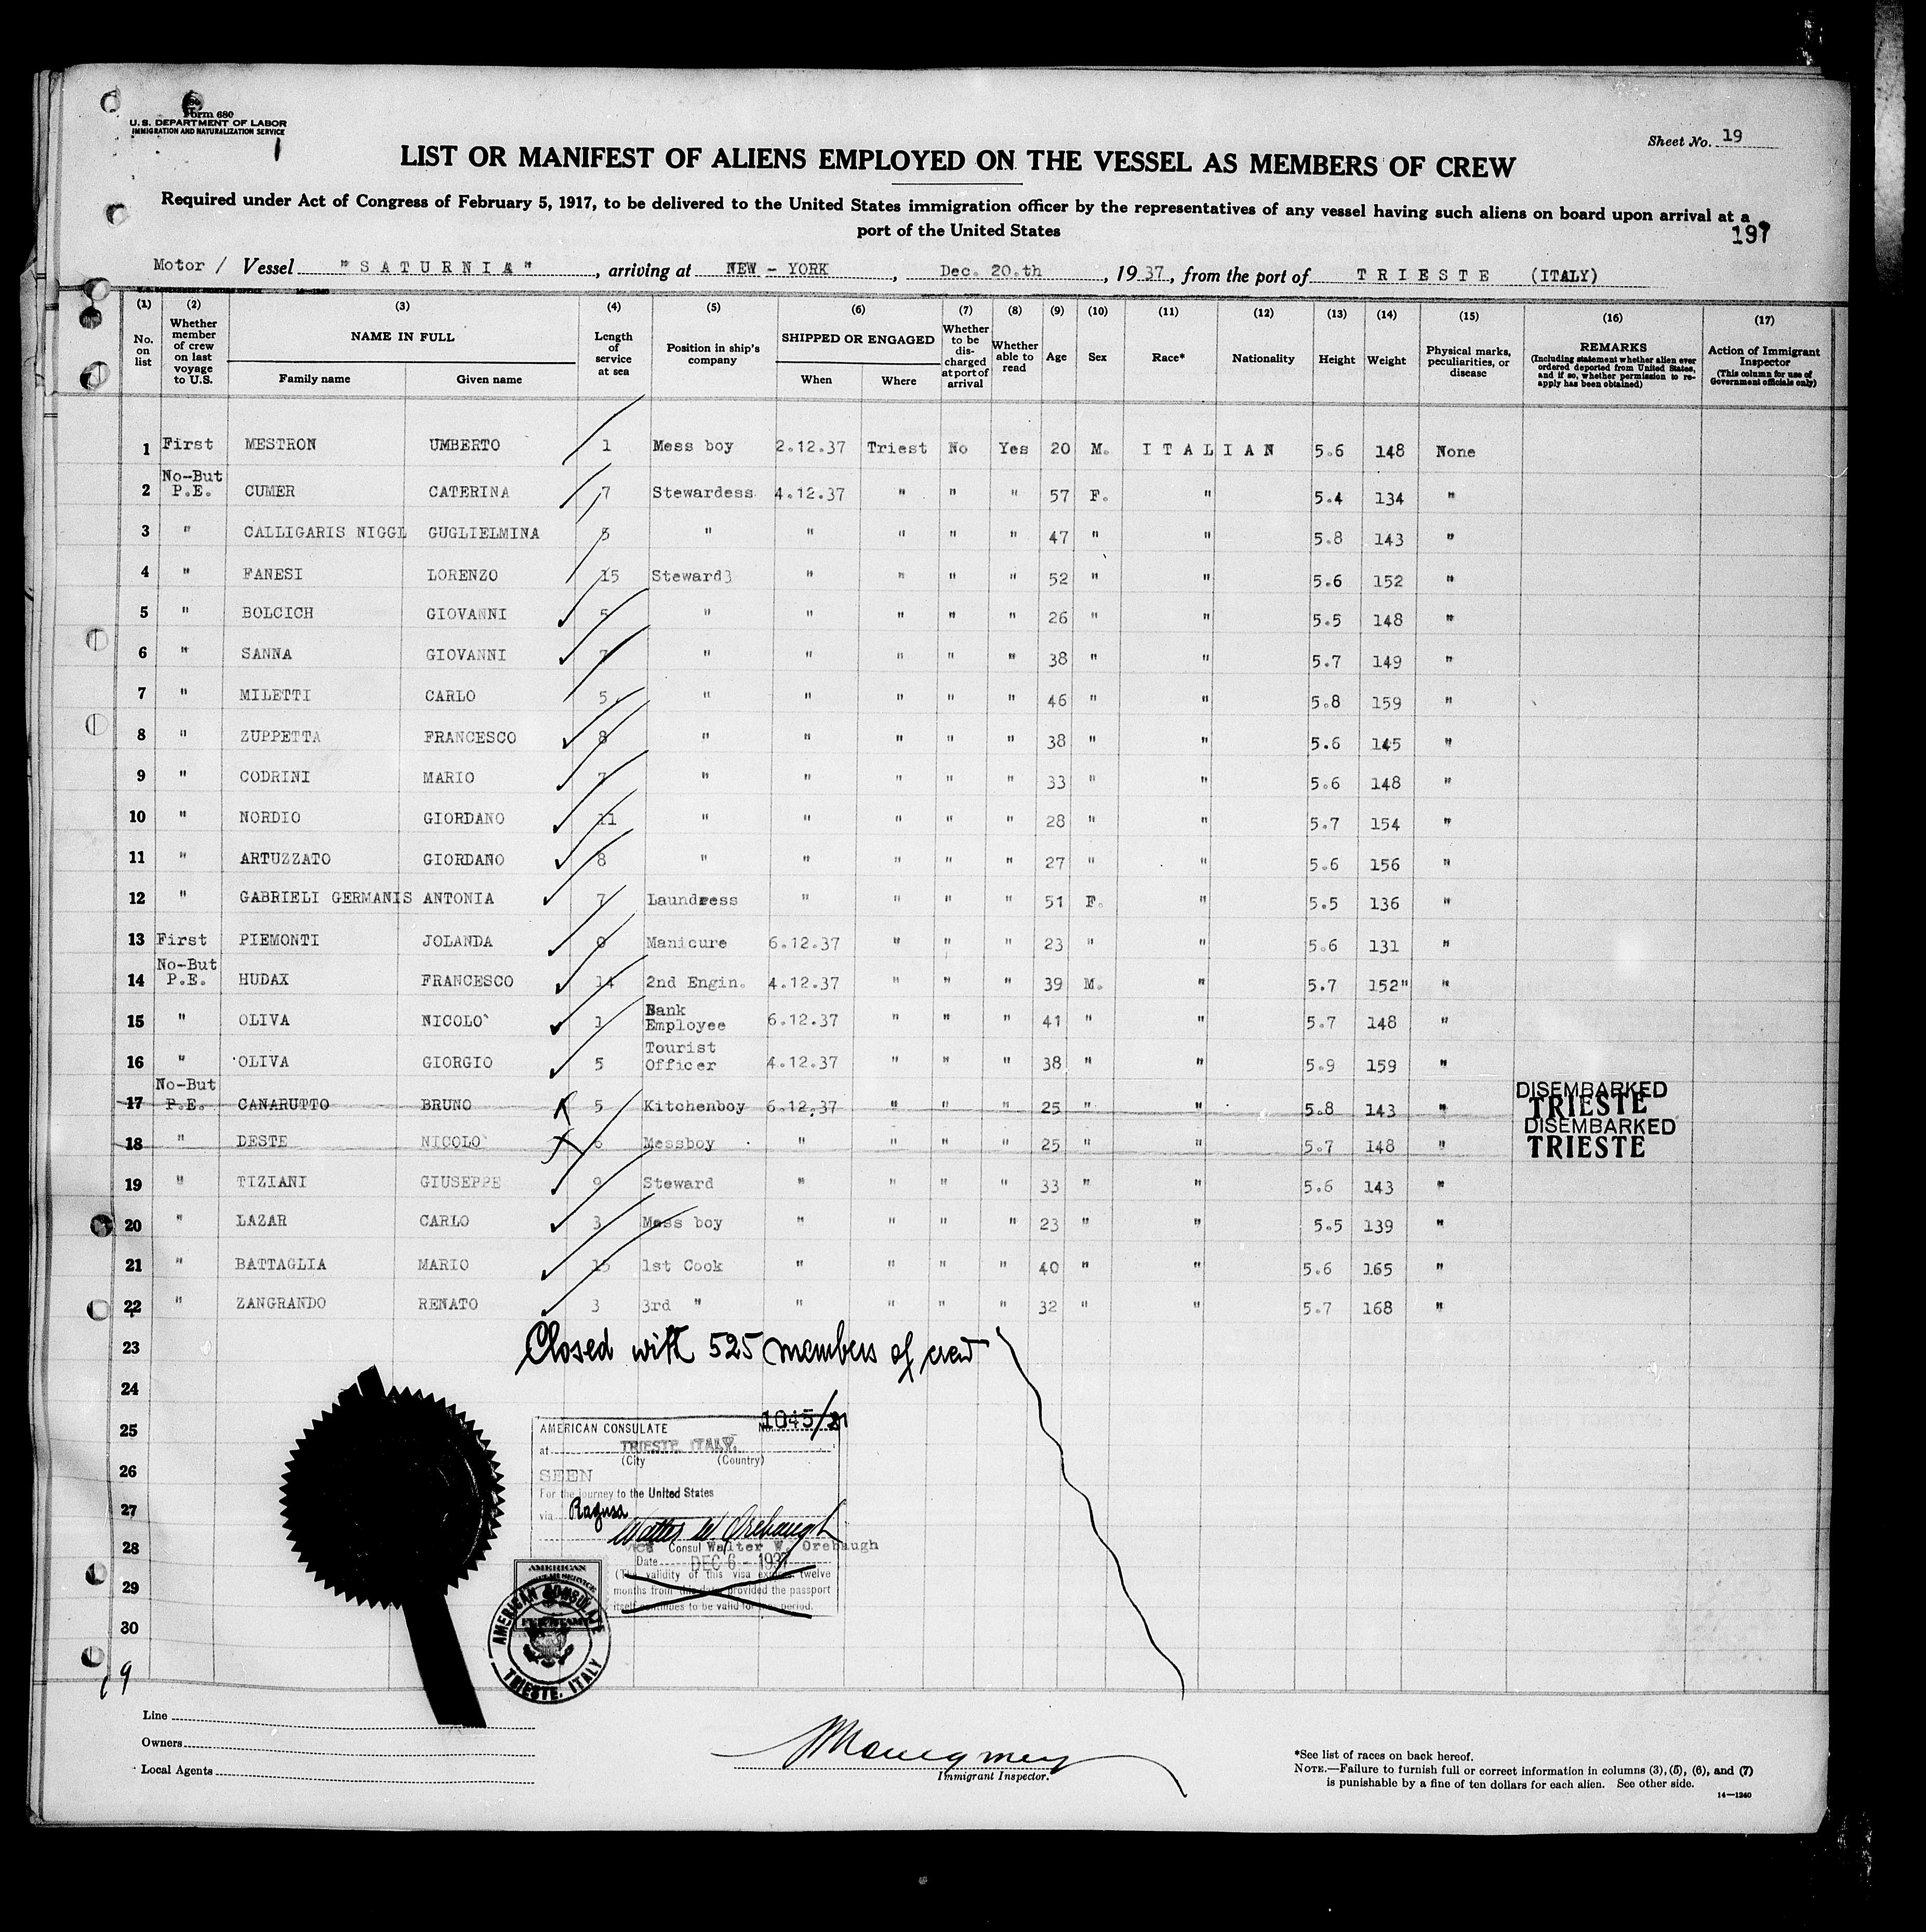 Form 680
U. S. DEPARTMENT OF LABOR
IMMIGRATION AND NATURALIZATION SERVICE
Sheet No. 19
LIST OR MANIFEST OF ALIENS EMPLOYED ON THE VESSEL AS MEMBERS OF CREW
Required under Act of Congress of February 5, 1917, to be delivered to the United States immigration officer by the representatives of any vessel having such aliens on board upon arrival at a
port of the United States
197
Motor / Vessel "SATURNIA", arriving at NEW - YORK, Dec. 20.th, 1937, from the port of TRIESTE (ITALY)
(1) (2) (3) (4) (5) (6) (7) (8) (9) (10) (11) (12) (13) (14) (15) (16) (17)
No. on list
Whether member of crew on last voyage to U.S.
NAME IN FULL
Family name Given name
Length of service at sea
Position in ship's company
SHIPPED OR ENGAGED
When Where
Whether to be discharged at port of arrival
Whether able to read
Age
Sex
Race*
Nationality
Height
Weight
Physical marks, peculiarities, or disease
REMARKS
(Including statement whether alien ever ordered deported from United States, and if so, whether permission to reapply has been obtained)
Action of Immigrant Inspector
(This column for use of Government officials only)
1 First MESTRON UMBERTO 1 Mess boy 2.12.37 Triest No Yes 20 M. ITALIAN 5.6 148 None
2 No-But P.E. CUMER CATERINA 7 Stewardess 4.12.37 " " " 57 F. " 5.4 134 "
3 " CALLIGARIS NIGGL GUGLIELMINA 5 " " " " " 47 " " 5.8 143 "
4 " FANESI LORENZO 15 Steward3 " " " " 52 " " 5.6 152 "
5 " BOLCICH GIOVANNI 5 " " " " " 26 " " 5.5 148 "
6 " SANNA GIOVANNI 7 " " " " " 38 " " 5.7 149 "
7 " MILETTI CARLO 5 " " " " " 46 " " 5.8 159 "
8 " ZUPPETTA FRANCESCO 8 " " " " " 38 " " 5.6 145 "
9 " CODRINI MARIO 7 " " " " " 33 " " 5.6 148 "
10 " NORDIO GIORDANO 11 " " " " " 28 " " 5.7 154 "
11 " ARTUZZATO GIORDANO 8 " " " " " 27 " " 5.6 156 "
12 " GABRIELI GERMANIS ANTONIA 7 Laundress " " " " 51 F. " 5.5 136 "
13 First PIEMONTI JOLANDA 0 Manicure 6.12.37 " " " 23 " " 5.6 131 "
14 No-But P.E. HUDAX FRANCESCO 14 2nd Engin. 4.12.37 " " " 39 M. " 5.7 152" "
15 " OLIVA NICOLO` 1 Bank Employee 6.12.37 " " " 41 " " 5.7 148 "
16 " OLIVA GIORGIO 5 Tourist Officer 4.12.37 " " " 38 " " 5.9 159 "
17 No-But P.E. CANARUTTO BRUNO 5 Kitchenboy 6.12.37 " " " 25 " " 5.8 143 " DISEMBARKED TRIESTE
18 " DESTE NICOLO` 6 Messboy " " " " 25 " " 5.7 148 " DISEMBARKED TRIESTE
19 " TIZIANI GIUSEPPE 9 Steward " " " " 33 " " 5.6 143 "
20 " LAZAR CARLO 3 Mess boy " " " " 23 " " 5.5 139 "
21 " BATTAGLIA MARIO 15 1st Cook " " " " 40 " " 5.6 165 "
22 " ZANGRANDO RENATO 3 3rd " " " " " 32 " " 5.7 168 "
23
Closed with 525 members of crew
24
25
26
27
28
29
30
AMERICAN CONSULATE No. 1045/
at TRIESTE ITALY.
(City (Country)
SEEN
For the journey to the United States
via Ragusa
Walter W. Orebaugh
Vice Consul Walter W. Orebaugh
Date DEC 6 - 1937
(The validity of this visa expires twelve
months from this date provided the passport
itself continues to be valid for the period.
AMERICAN
FEE STAMP
AMERICAN CONSULATE
TRIESTE, ITALY
19
Line
Owners
Local Agents
Immigrant Inspector.
*See list of races on back hereof.
NOTE.—Failure to furnish full or correct information in columns (3), (5), (6), and (7)
is punishable by a fine of ten dollars for each alien. See other side.
14—1240